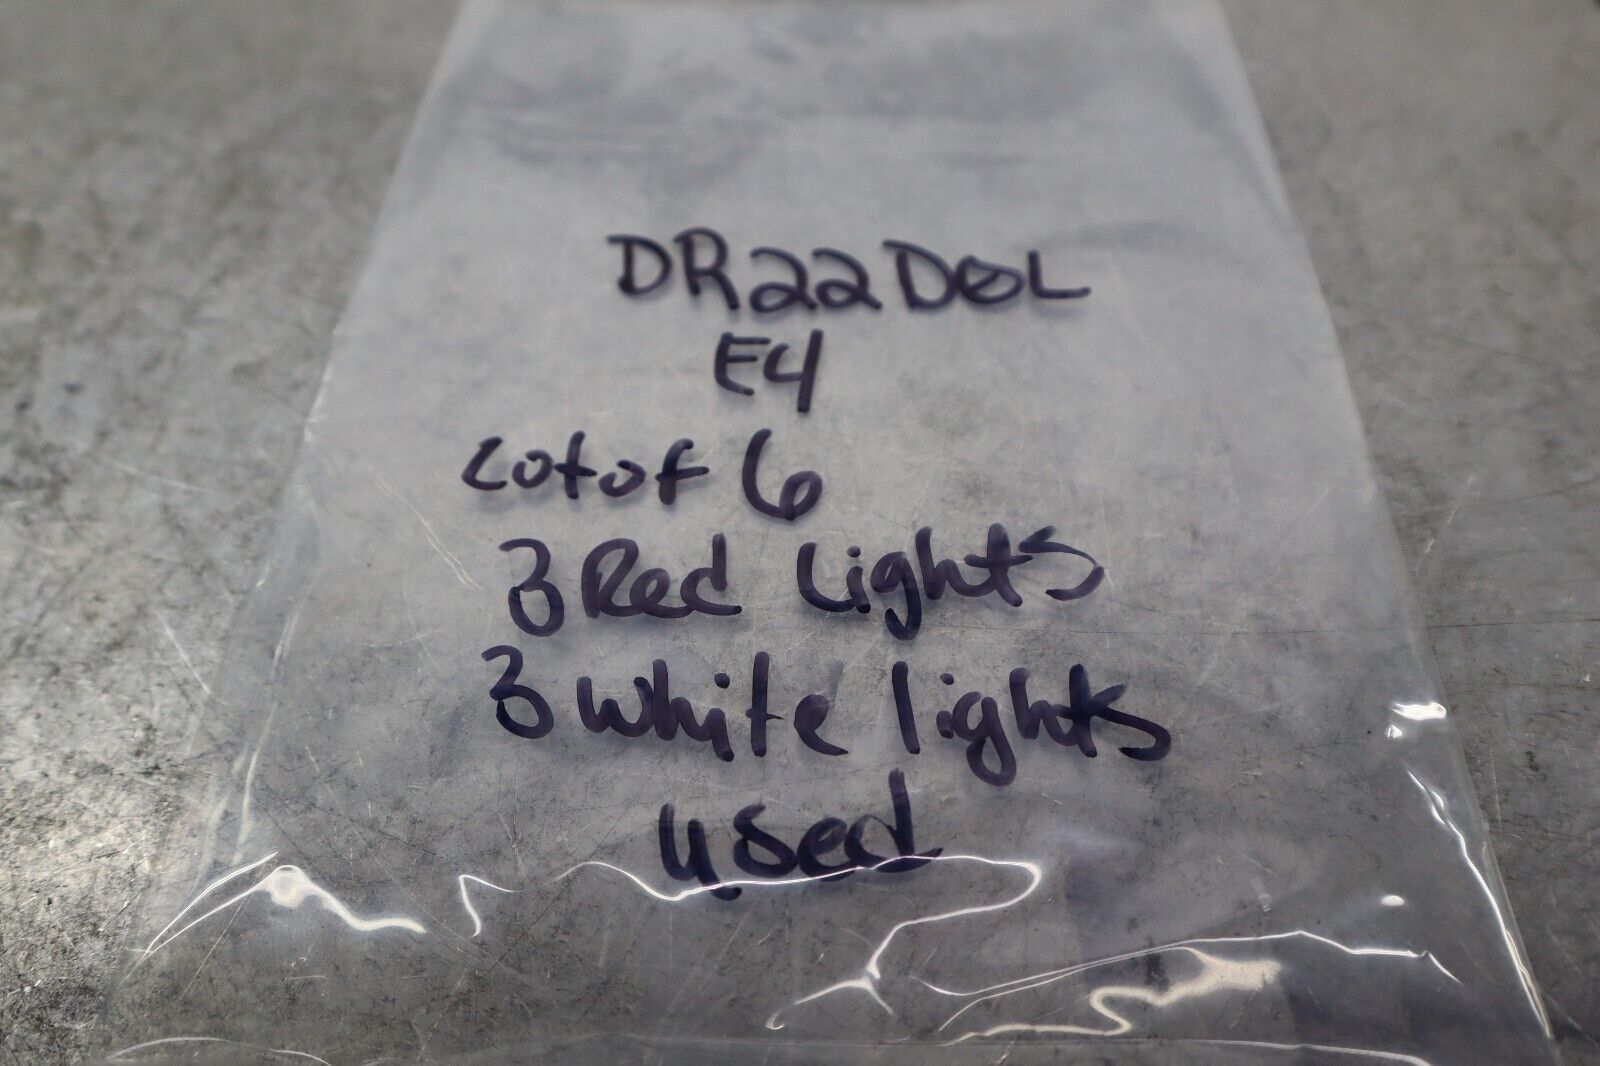 DR22D0L
E4
Lot of 6
3 Red Lights
3 white lights
used